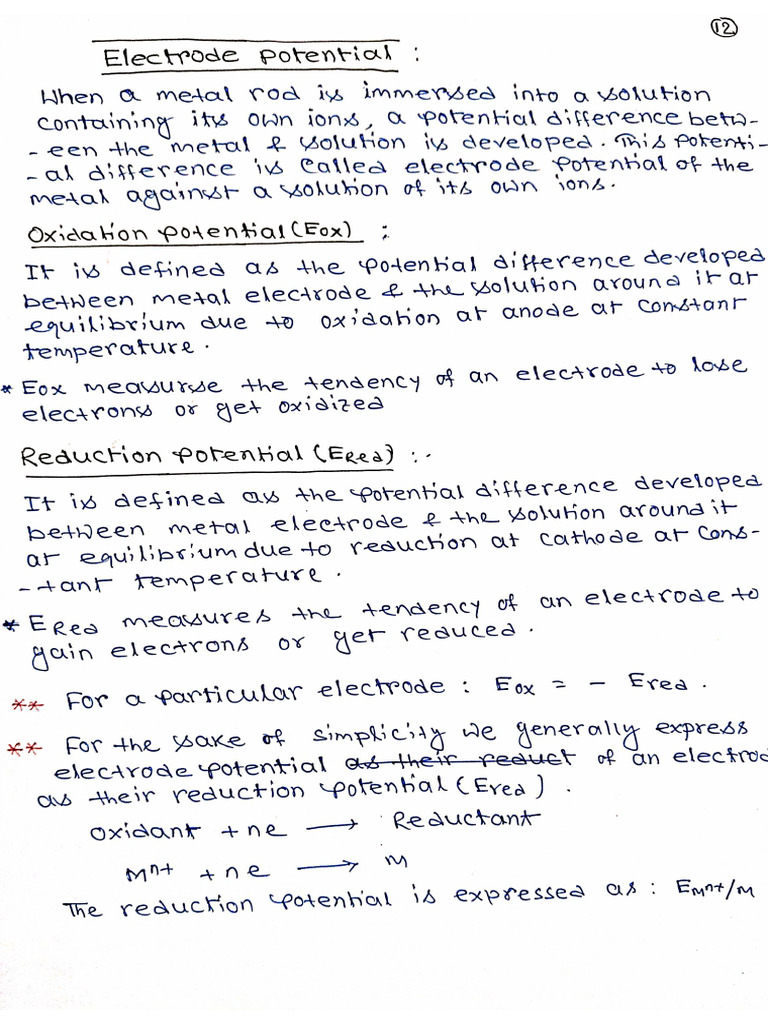 12
Electrode potential :
When a metal rod is immersed into a solution
containing its own ions, a potential difference betw-
-een the metal & solution is developed. This potenti-
-al difference is called electrode potential of the
metal against a solution of its own ions.
Oxidation potential (Eox) :
It is defined as the potential difference developed
between metal electrode & the solution around it at
equilibrium due to oxidation at anode at constant
temperature.
* Eox measurse the tendency of an electrode to lose
electrons or get oxidized
Reduction potential (ERed) :-
It is defined as the potential difference developed
between metal electrode & the solution around it
at equilibrium due to reduction at cathode at cons-
-tant temperature.
* ERed measures the tendency of an electrode to
gain electrons or get reduced.
** For a particular electrode : Eox = - Ered.
** For the sake of simplicity we generally express
electrode potential as their reduct of an electrod
as their reduction potential (Ered).
Oxidant + ne ⟶ Reductant
Mⁿ⁺ + ne ⟶ M
The reduction potential is expressed as : EMn+/M